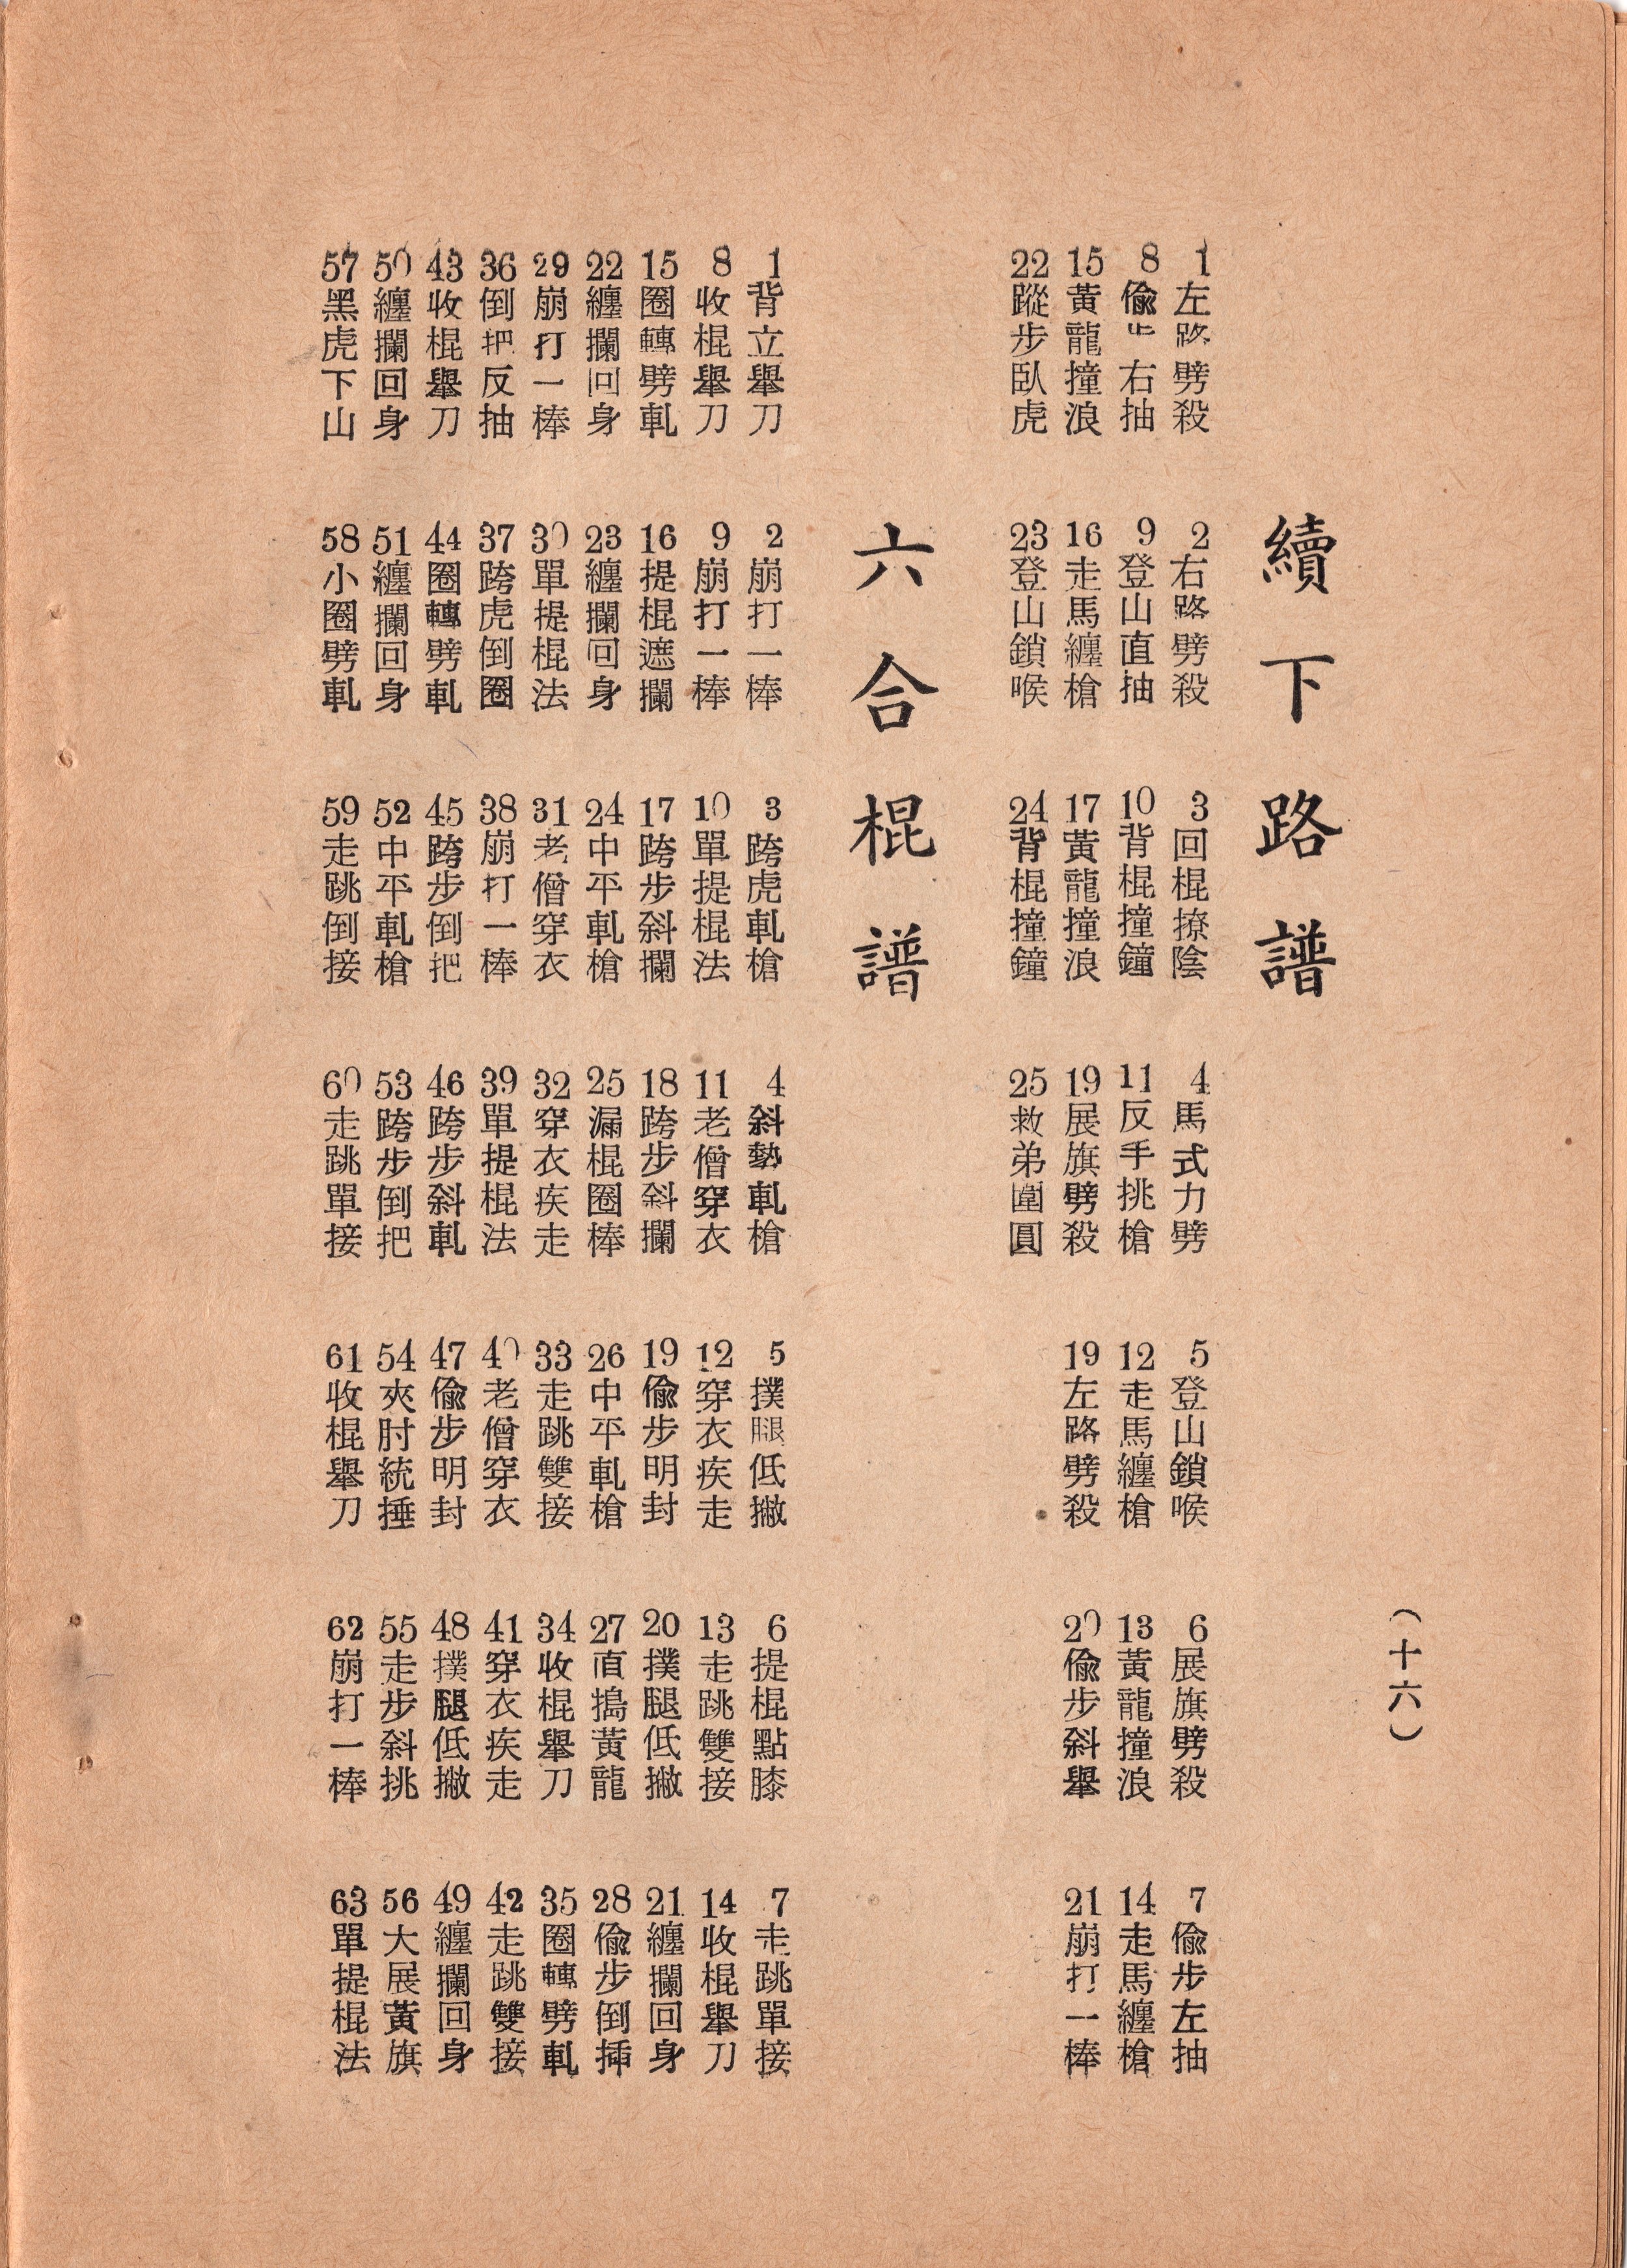 （十六）
續下路譜
1左路劈殺 2右路劈殺 3回棍撩陰 4馬式力劈 5登山鎖喉 6展旗劈殺 7偷步左抽
8偷步右抽 9登山直抽 10背棍撞鐘 11反手挑槍 12走馬纏槍 13黃龍撞浪 14走馬纏槍
15黃龍撞浪 16走馬纏槍 17黃龍撞浪 19展旗劈殺 19左路劈殺 20偷步斜舉 21崩打一棒
22蹤步臥虎 23登山鎖喉 24背棍撞鐘 25救弟圍圓
六合棍譜
1背立舉刀 2崩打一棒 3跨虎軋槍 4斜勢軋槍 5撲腿低撇 6提棍點膝 7走跳單接
8收棍舉刀 9崩打一棒 10單提棍法 11老僧穿衣 12穿衣疾走 13走跳雙接 14收棍舉刀
15圈轉劈軋 16提棍遮攔 17跨步斜攔 18跨步斜攔 19偷步明封 20撲腿低撇 21纏攔回身
22纏攔回身 23纏攔回身 24中平軋槍 25漏棍圈棒 26中平軋槍 27直搗黃龍 28偷步倒揷
29崩打一棒 30單提棍法 31老僧穿衣 32穿衣疾走 33走跳雙接 34收棍舉刀 35圈轉劈軋
36倒把反抽 37跨虎倒圈 38崩打一棒 39單提棍法 40老僧穿衣 41穿衣疾走 42走跳雙接
43收棍舉刀 44圈轉劈軋 45跨步倒把 46跨步斜軋 47偷步明封 48撲腿低撇 49纏攔回身
50纏攔回身 51纏攔回身 52中平軋槍 53跨步倒把 54夾肘統捶 55走步斜挑 56大展黃旗
57黑虎下山 58小圈劈軋 59走跳倒接 60走跳單接 61收棍舉刀 62崩打一棒 63單提棍法